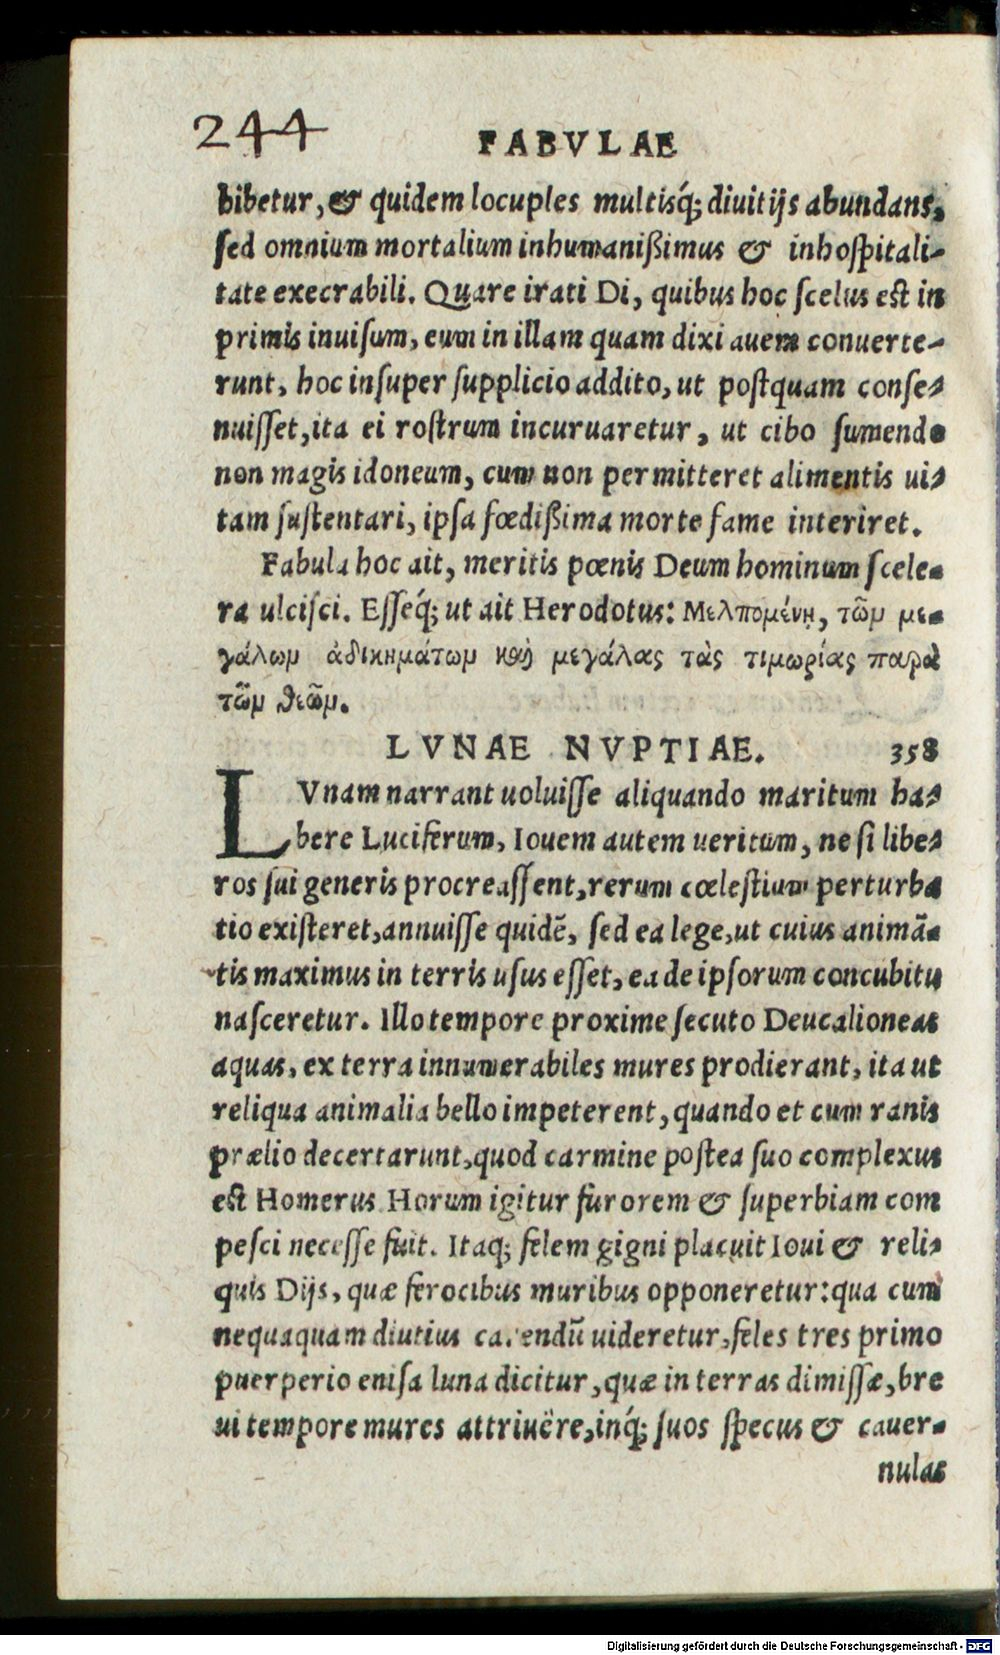 244
FABVLAE
bibetur, & quidem locuples multisq́; diuitijs abundans,
sed omnium mortalium inhumanißimus & inhospitali-
tate execrabili. Quare irati Di, quibus hoc scelus est in
primis inuisum, eum in illam quam dixi auem conuerte-
runt, hoc insuper supplicio addito, ut postquam conse-
nuisset, ita ei rostrum incuruaretur, ut cibo sumendo
non magis idoneum, cum non permitteret alimentis ui-
tam sustentari, ipsa fœdißima morte fame interiret.
Fabula hoc ait, meritis pœnis Deum hominum scele-
ra ulcisci. Esseq́; ut ait Herodotus: Μελπομένῃ, τῶμ με-
γάλωμ ἀδικημάτωμ καὶ μεγάλας τὰς τιμωρίας παρὰ
τῶμ θεῶμ.
LVNAE NVPTIAE. 358
LVnam narrant uoluisse aliquando maritum ha-
bere Luciferum, Iouem autem ueritum, ne si libe-
ros sui generis procreassent, rerum cœlestium perturba
tio existeret, annuisse quidē, sed ea lege, ut cuius animā-
tis maximus in terris usus esset, ea de ipsorum concubitu
nasceretur. Illo tempore proxime secuto Deucalioneas
aquas, ex terra innumerabiles mures prodierant, ita ut
reliqua animalia bello impeterent, quando et cum ranis
prælio decertarunt, quod carmine postea suo complexus
est Homerus. Horum igitur furorem & superbiam com
pesci necesse fuit. Itaq; felem gigni placuit Ioui & reli-
quis Dijs, quæ ferocibus muribus opponeretur: qua cum
nequaquam diutius carendū uideretur, feles tres primo
puerperio enisa luna dicitur, quæ in terras dimissæ, bre
ui tempore mures attriuëre, inq́; suos specus & cauer-
nulas
Digitalisierung gefördert durch die Deutsche Forschungsgemeinschaft - DFG